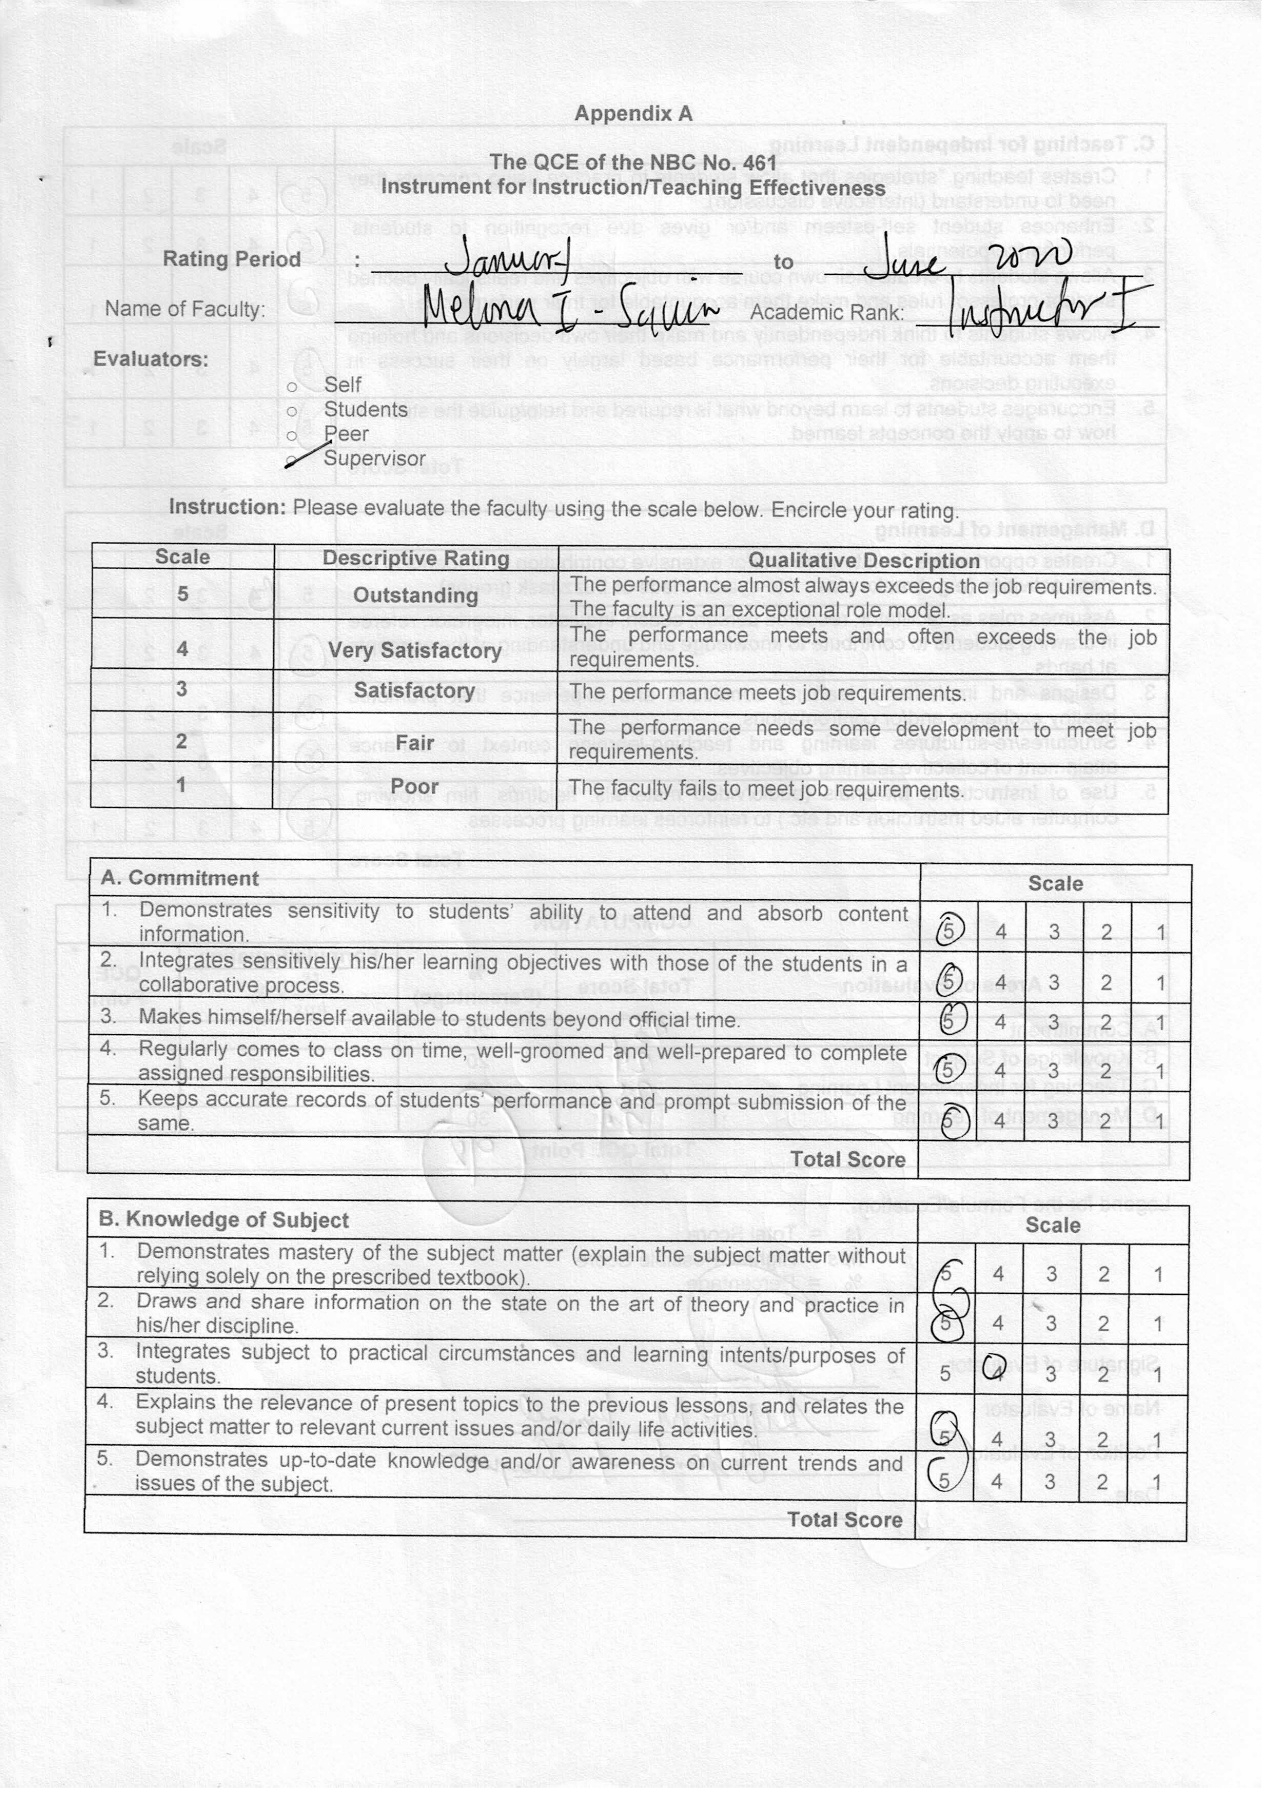 Appendix A
The QCE of the NBC No. 461
Instrument for Instruction/Teaching Effectiveness
Rating Period : January to June 2020
Name of Faculty: Melona I - Academic Rank: Instructor I
Evaluators:
Self
Students
Peer
Supervisor
Instruction: Please evaluate the faculty using the scale below. Encircle your rating.
Scale Descriptive Rating Qualitative Description
5 Outstanding The performance almost always exceeds the job requirements.
The faculty is an exceptional role model.
4 Very Satisfactory The performance meets and often exceeds the job
requirements.
3 Satisfactory The performance meets job requirements.
2 Fair The performance needs some development to meet job
requirements.
1 Poor The faculty fails to meet job requirements.
A. Commitment Scale
1. Demonstrates sensitivity to students' ability to attend and absorb content
information. 5 4 3 2 1
2. Integrates sensitively his/her learning objectives with those of the students in a
collaborative process. 5 4 3 2 1
3. Makes himself/herself available to students beyond official time. 5 4 3 2 1
4. Regularly comes to class on time, well-groomed and well-prepared to complete
assigned responsibilities. 5 4 3 2 1
5. Keeps accurate records of students' performance and prompt submission of the
same. 5 4 3 2 1
Total Score
B. Knowledge of Subject Scale
1. Demonstrates mastery of the subject matter (explain the subject matter without
relying solely on the prescribed textbook). 5 4 3 2 1
2. Draws and share information on the state on the art of theory and practice in
his/her discipline. 5 4 3 2 1
3. Integrates subject to practical circumstances and learning intents/purposes of
students. 5 4 3 2 1
4. Explains the relevance of present topics to the previous lessons, and relates the
subject matter to relevant current issues and/or daily life activities. 5 4 3 2 1
5. Demonstrates up-to-date knowledge and/or awareness on current trends and
issues of the subject. 5 4 3 2 1
Total Score